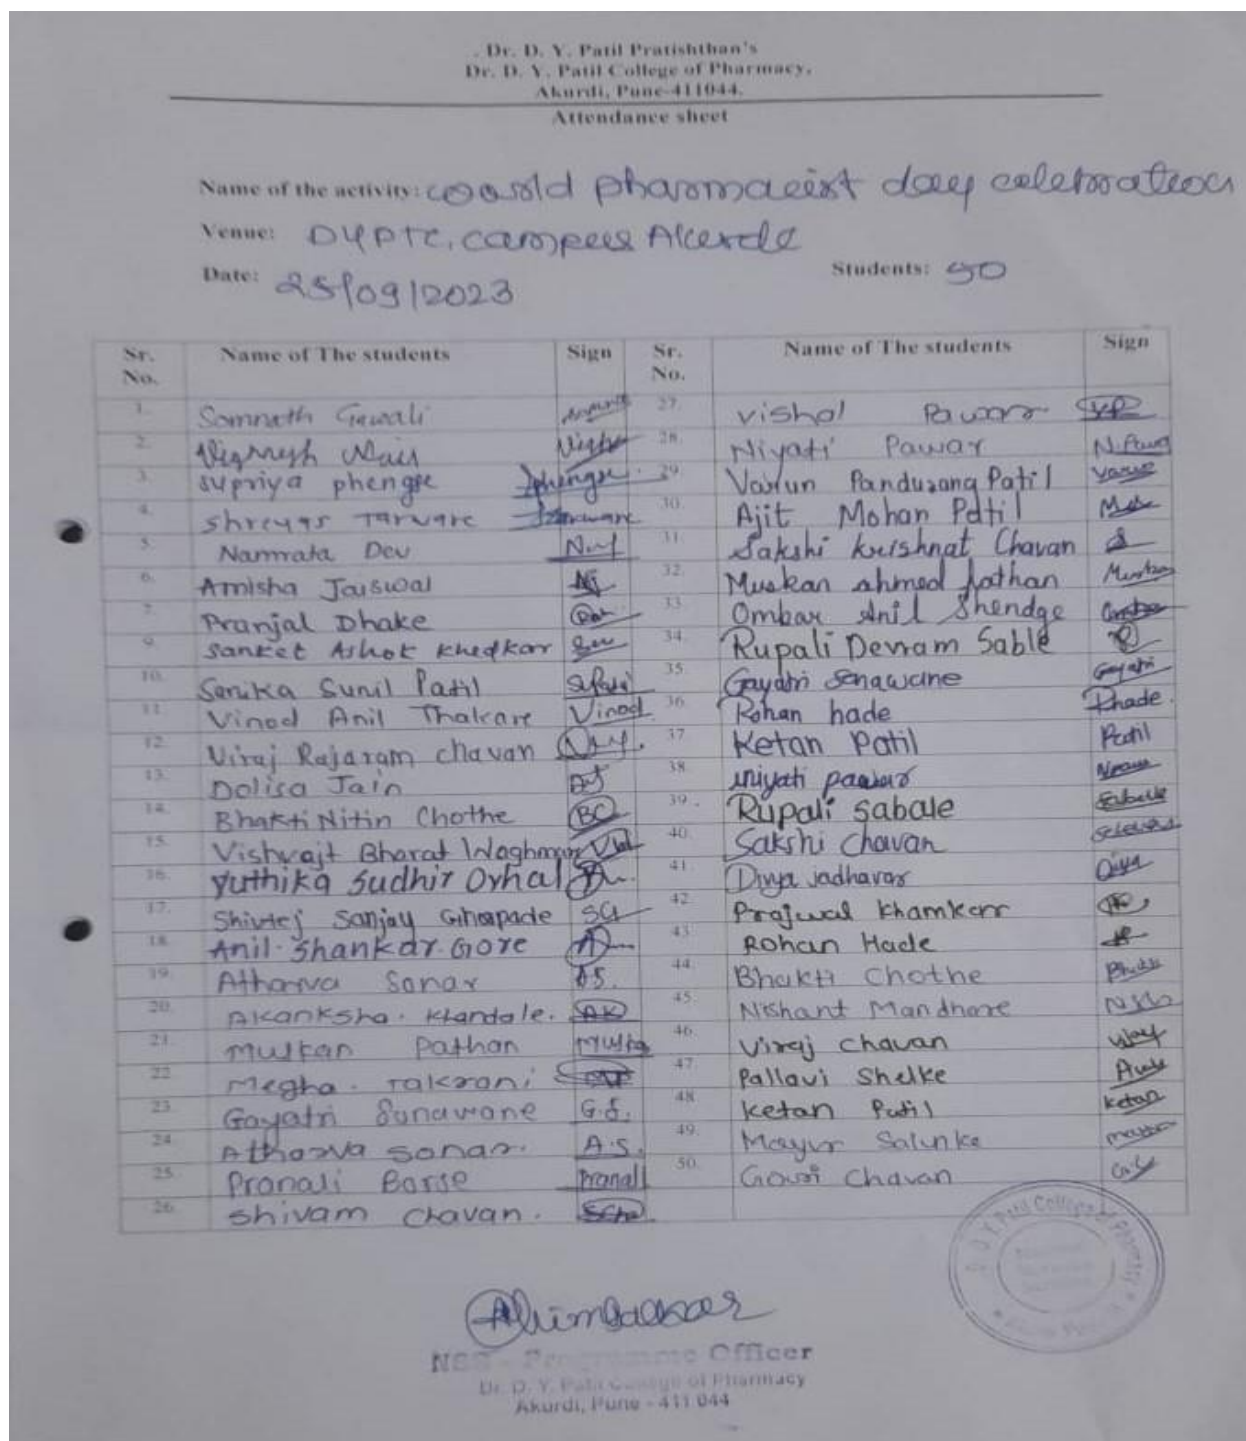 Dr. D. Y. Patil Pratishthan's
Dr. D. Y. Patil College of Pharmacy,
Akurdi, Pune-411044.
Attendance sheet
Name of the activity: World pharmacist day celebration
Venue: DYPTC, campus Akurdi
Date: 25/09/2023 Students: 50
Sr. No. Name of The students Sign Sr. No. Name of The students Sign
1. Somnath Gawali 27. Vishal Pawar VP
2. Vignesh Nair 28. Niyati Pawar N. Pawa
3. Supriya phengse phengse 29. Varun Pandurang Patil Varun
4. Shreyas Tarware Tarware 30. Ajit Mohan Patil
5. Namrata Dev 31. Sakshi krishnat Chavan
6. Amisha Jaiswal AJ 32. Muskan ahmed Pathan Muskan
7. Pranjal Dhake 33. Ombar Anil Shendge
9. Sanket Ashok Khedkar 34. Rupali Devram Sable
10. Sanika Sunil Patil 35. Gayatri Sonawane Gayatri
11. Vinod Anil Thakare Vinod 36. Rohan hade Rhade
12. Viraj Rajaram chavan 37. Ketan Patil Patil
13. Dolisa Jain DJ 38. niyati pawar
14. Bhakti Nitin Chothe BC 39. Rupali sabale Sabale
15. Vishvajt Bharat Waghmar 40. Sakshi Chavan
16. Yuthika Sudhir Orhal 41. Divya Jadhavar Divya
17. Shivtej Sanjay Ghorpade SG 42. Prajwal Khamkarr
18. Anil Shankar Gore A 43. Rohan Hade
19. Atharva Sonar A.S. 44. Bhakti Chothe Bhakti
20. Akanksha. Khandale. AK 45. Nishant Mandhare
21. Muskan Pathan Muskan 46. Viraj chavan
22. Megha. Takrani 47. Pallavi Shelke
23. Gayatri Sonawane G.S. 48. Ketan Patil Ketan
24. Atharva Sonar. A.S. 49. Mayur Salunke
25. Pranali Borse Pranali 50. Gauri Chavan
26. Shivam Chavan. SCha
D. Y. Patil College of Pharmacy
NSS - Programme Officer
Dr. D. Y. Patil College of Pharmacy
Akurdi, Pune - 411 044